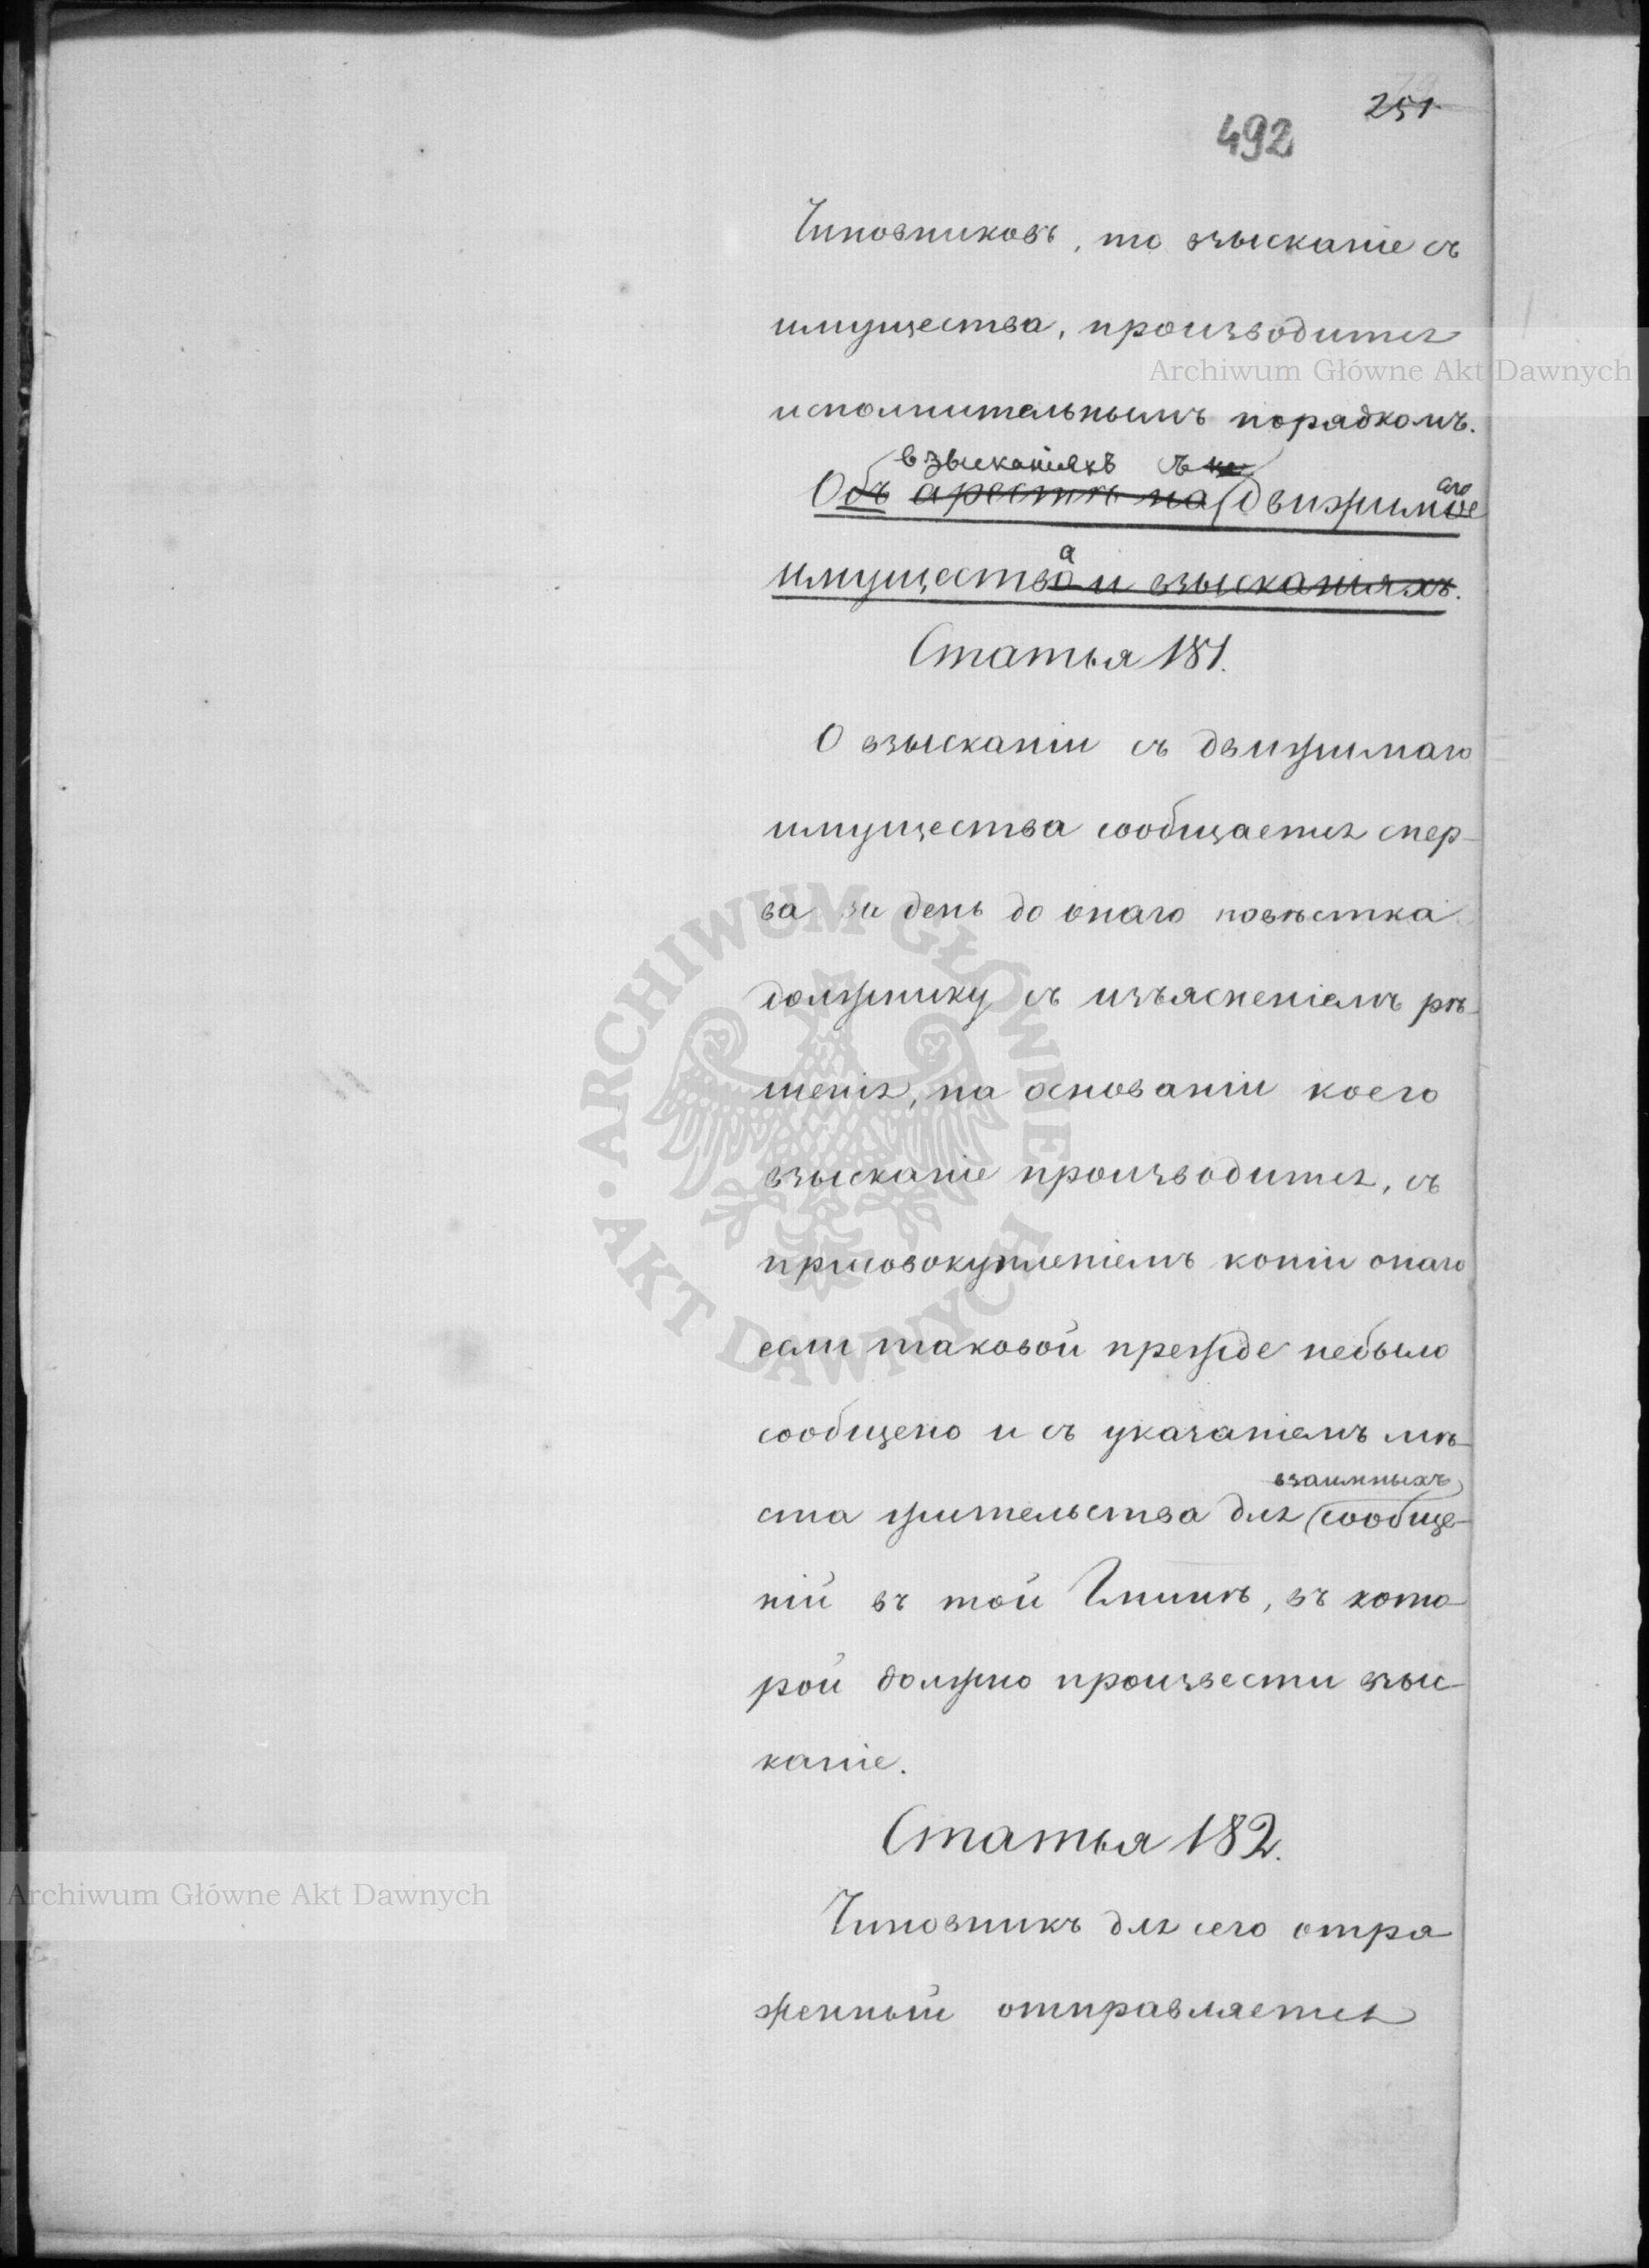 251
492
Чиновниковъ, то взысканіе съ
имущества, производится
исполнительнымъ порядкомъ.
взысканіяхъ съ
Объ арестѣ на движимое
аго
имущество и взысканіяхъ.
а
Статья 181.
О взысканіи съ движимаго
имущества сообщается спер-
ва за день до онаго повѣстка
должнику съ изъясненіемъ рѣ-
шенія, на основаніи коего
взысканіе производится, съ
присовокупленіемъ копіи онаго
если таковой прежде небыло
сообщено и съ указаніемъ мѣ-
взаимныхъ
ста жительства для сообще-
ній въ той Гминѣ, въ кото-
рой должно произвести взыс-
каніе.
Статья 182.
Чиновникъ для сего отря
женный отправляется
Archiwum Główne Akt Dawnych
ARCHIWUM GŁÓWNE AKT DAWNYCH
Archiwum Główne Akt Dawnych